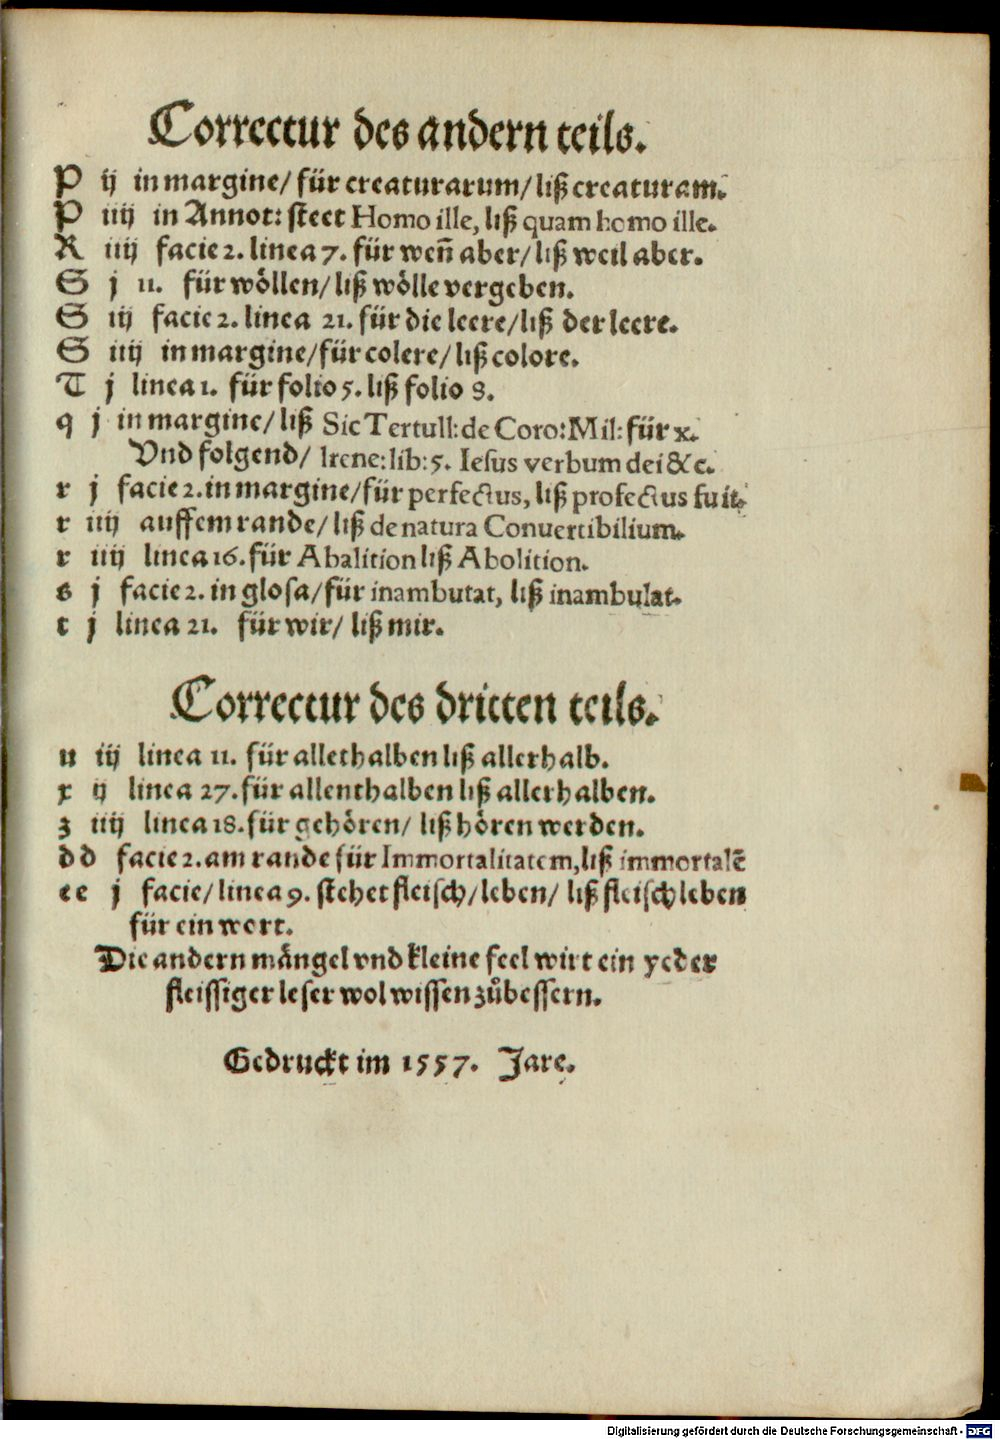 Correctur des andern teils.
P ij in margine/ für creaturarum/ liß creaturam.
P iiij in Annot: steet Homo ille, liß quam homo ille.
R iiij facie 2. linea 7. für weñ aber/ liß weil aber.
S j 11. für wöllen/ liß wölle vergeben.
S iij facie 2. linea 21. für die leere/ liß der leere.
S iiij in margine/ für colere/ liß colore.
T j linea 1. für folio 5. liß folio 8.
q j in margine/ liß Sic Tertull: de Coro: Mil: für x.
Vnd folgend/ Irene: lib: 5. Iesus verbum dei &c.
r j facie 2. in margine/ für perfectus, liß profectus fuit.
r iiij auffem rande/ liß de natura Convertibilium.
r iiij linea 16. für Abalition liß Abolition.
s j facie 2. in glosa/ für inambutat, liß inambulat.
t j linea 21. für wir/ liß mir.
Correctur des dritten teils.
u iij linea 11. für allethalben liß allerhalb.
x ij linea 27. für allenthalben liß allerhalben.
z iiij linea 18. für gehören/ liß hören werden.
dd facie 2. am rande für Immortalitatem, liß immortalē
ee j facie/ linea 9. stehet fleisch/ leben/ liß fleischleben
für ein wort.
Die andern mängel vnd kleine feel wirt ein yeder
fleissiger leser wol wissen zůbessern.
Gedruckt im 1557. Jare.
Digitalisierung gefördert durch die Deutsche Forschungsgemeinschaft - DFG